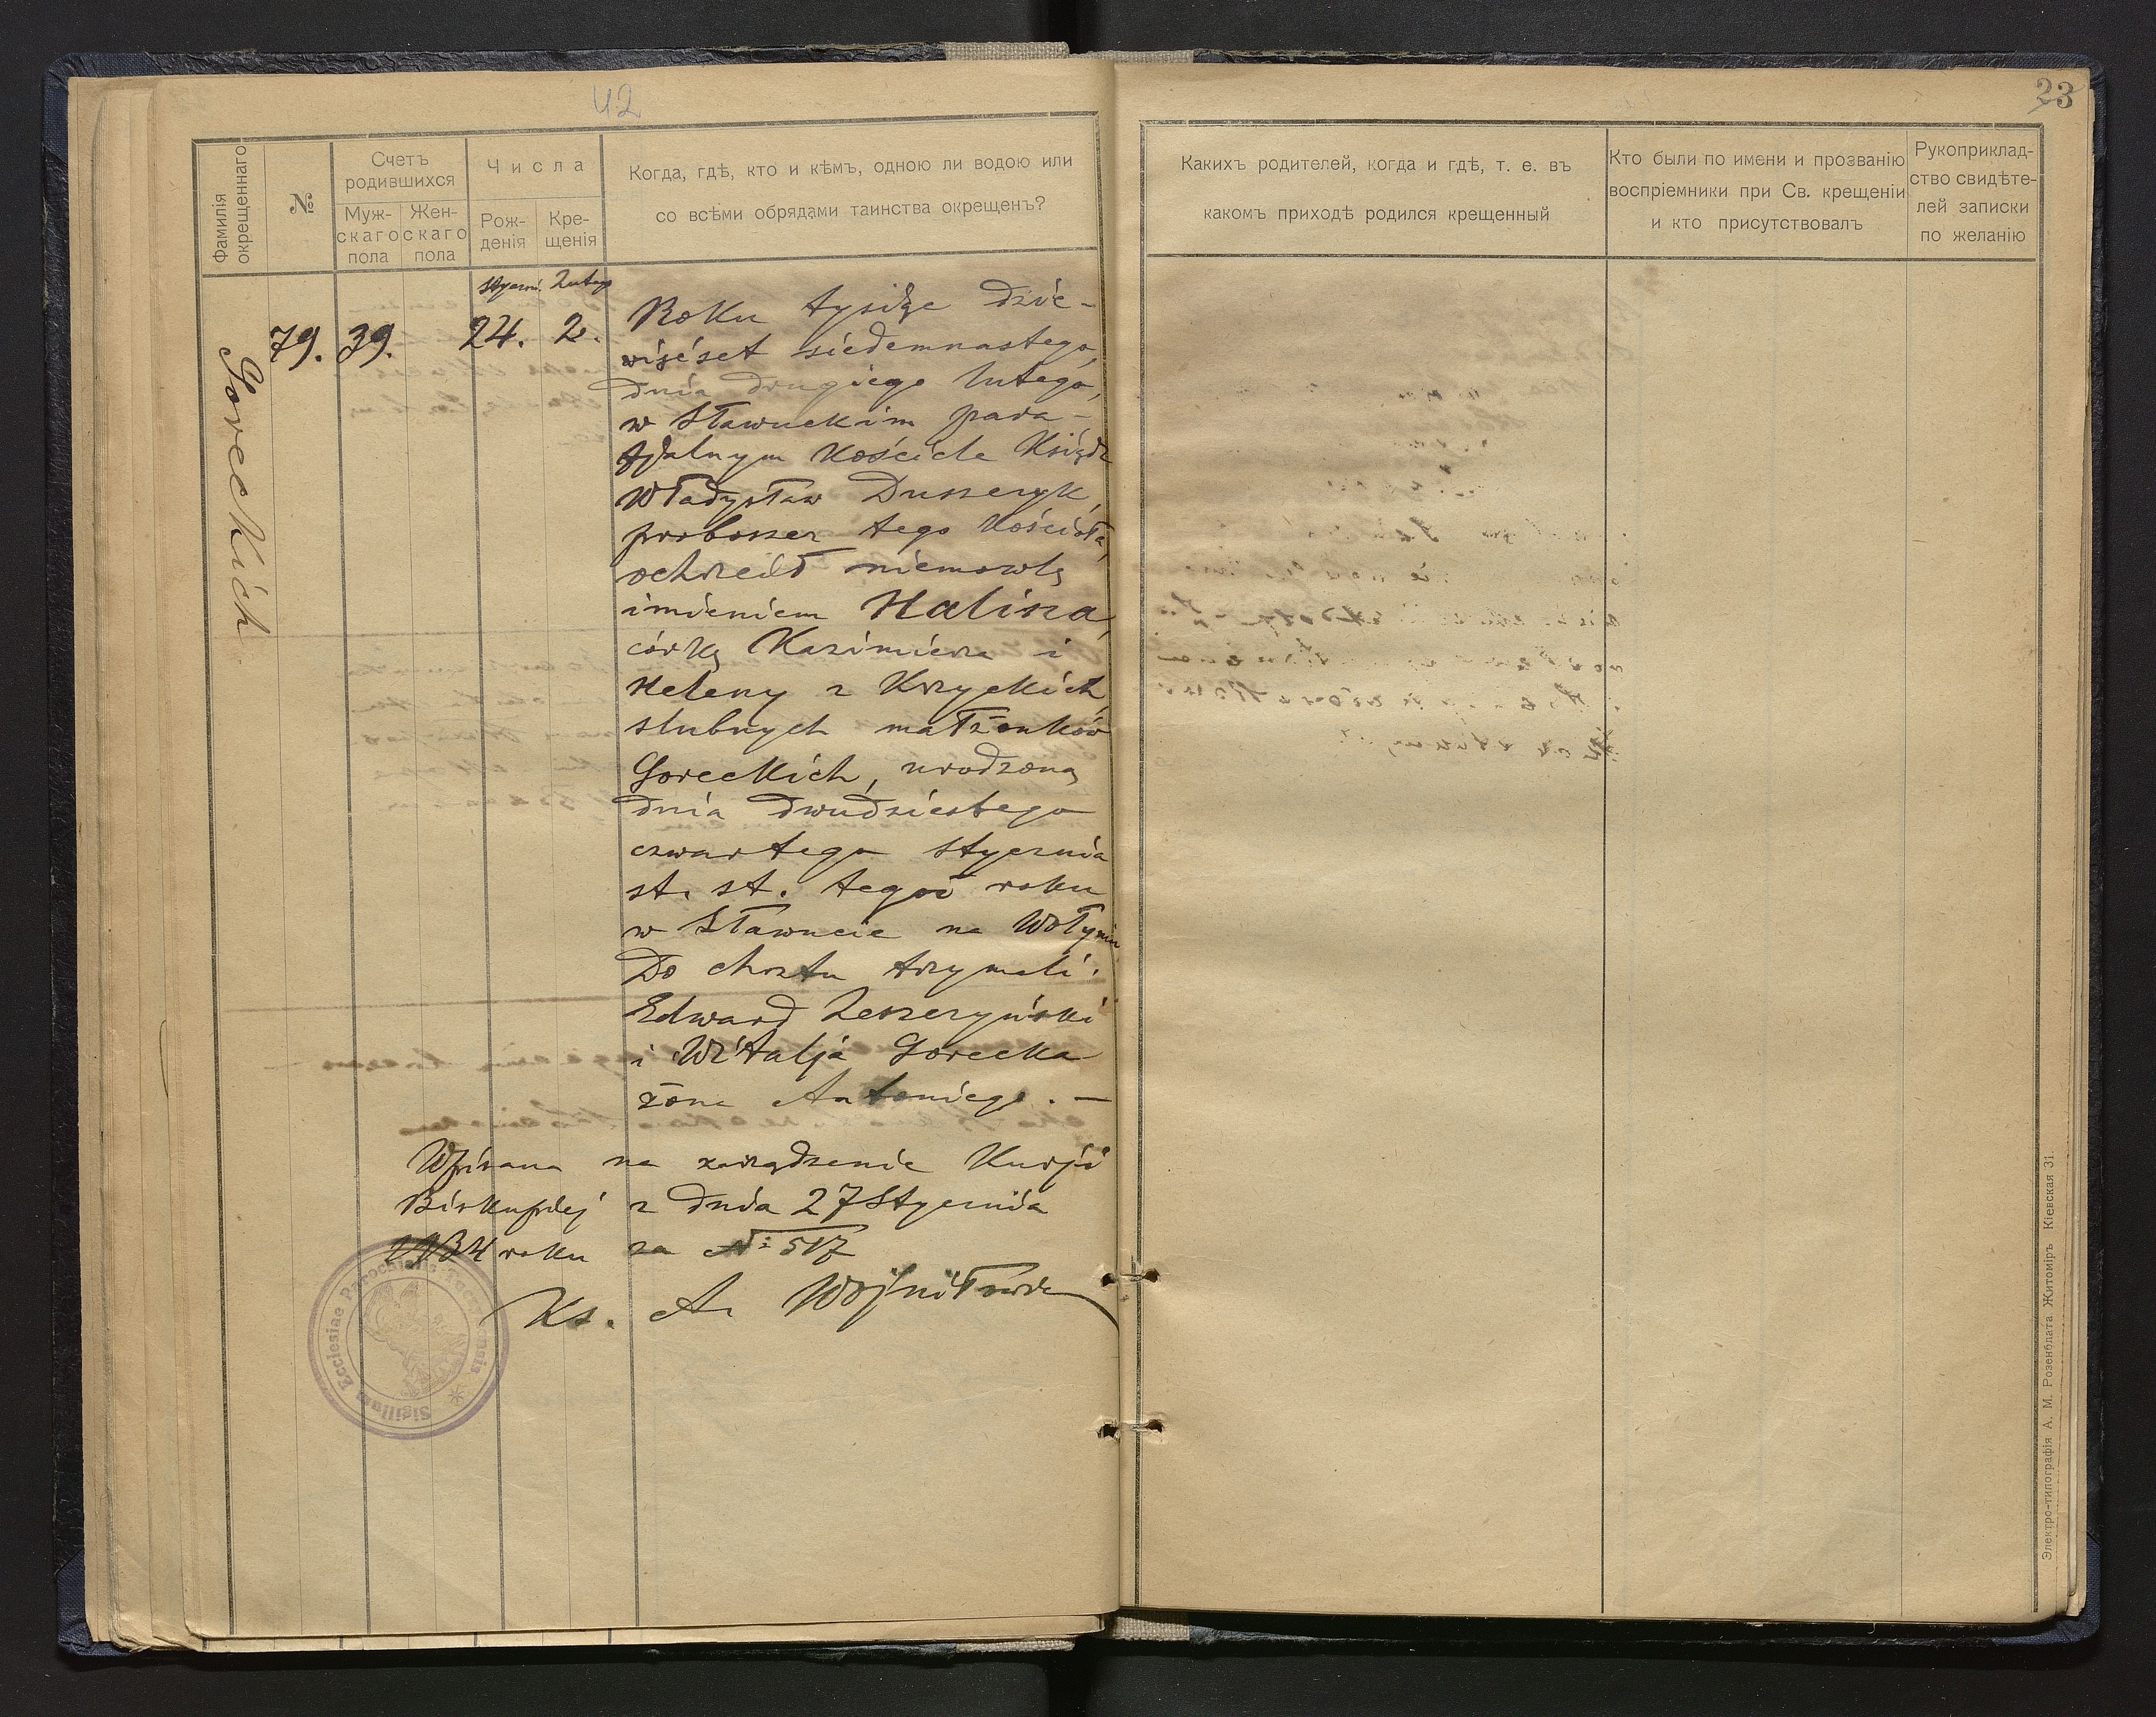 42
Фамилія окрещеннаго
№
Счетъ родившихся
Муж-
скаго
пола
Жен-
скаго
пола
Числа
Рож-
денія
Кре-
щенія
Когда, гдѣ, кто и кѣмъ, одною ли водою или
со всѣми обрядами таинства окрещенъ?
Goreckich
79.
39.
Styczni.
24.
Lutego
2.
Roku tysiąc dzie-
więćset siedemnastego,
dnia drugiego lutego,
w Sławuckim para-
fjalnym Kościele Ksiądz
Władysław Duszczyk,
proboszcz tego Kościoła,
ochrzcił niemowlę
imieniem Halina,
córkę Kazimierza i
Heleny z Krzyckich,
ślubnych małżonków
Goreckich, urodzoną
dnia dwudziestego
czwartego stycznia
st. st. tegoż roku
w Sławucie na Wołyniu
Do chrztu trzymali:
Edward Leszczyński
i Witalja Gorecka
żona Antoniego. —
Wpisana na zarządzenie Kurji
Biskupiej z dnia 27 Stycznia
1934 roku za № 517
Ks. A.
Sigillum Ecclesiae Parochialis
23
Какихъ родителей, когда и гдѣ, т. е. въ
какомъ приходѣ родился крещенный
Кто были по имени и прозванію
воспріемники при Св. крещеніи
и кто присутствовалъ
Рукоприклад-
ство свидѣте-
лей записки
по желанію
Электро-типографія А. М. Розенблата Житоміръ Кіевская 31.